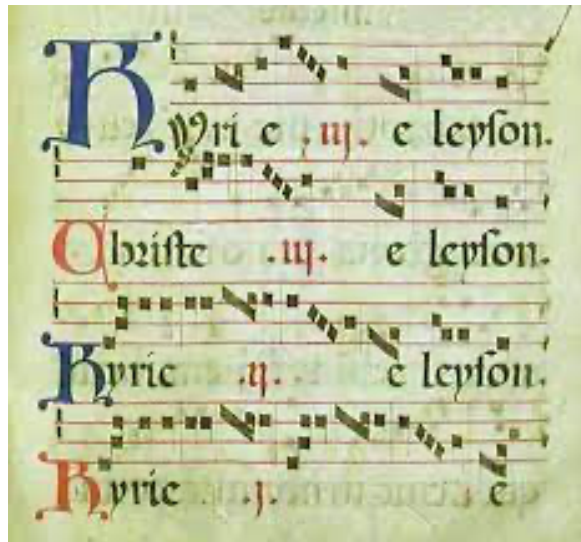 Kyri e .iij. e leyson.
Christe .iij. e leyson.
Kyrie .ij. e leyson.
Kyrie .j. e